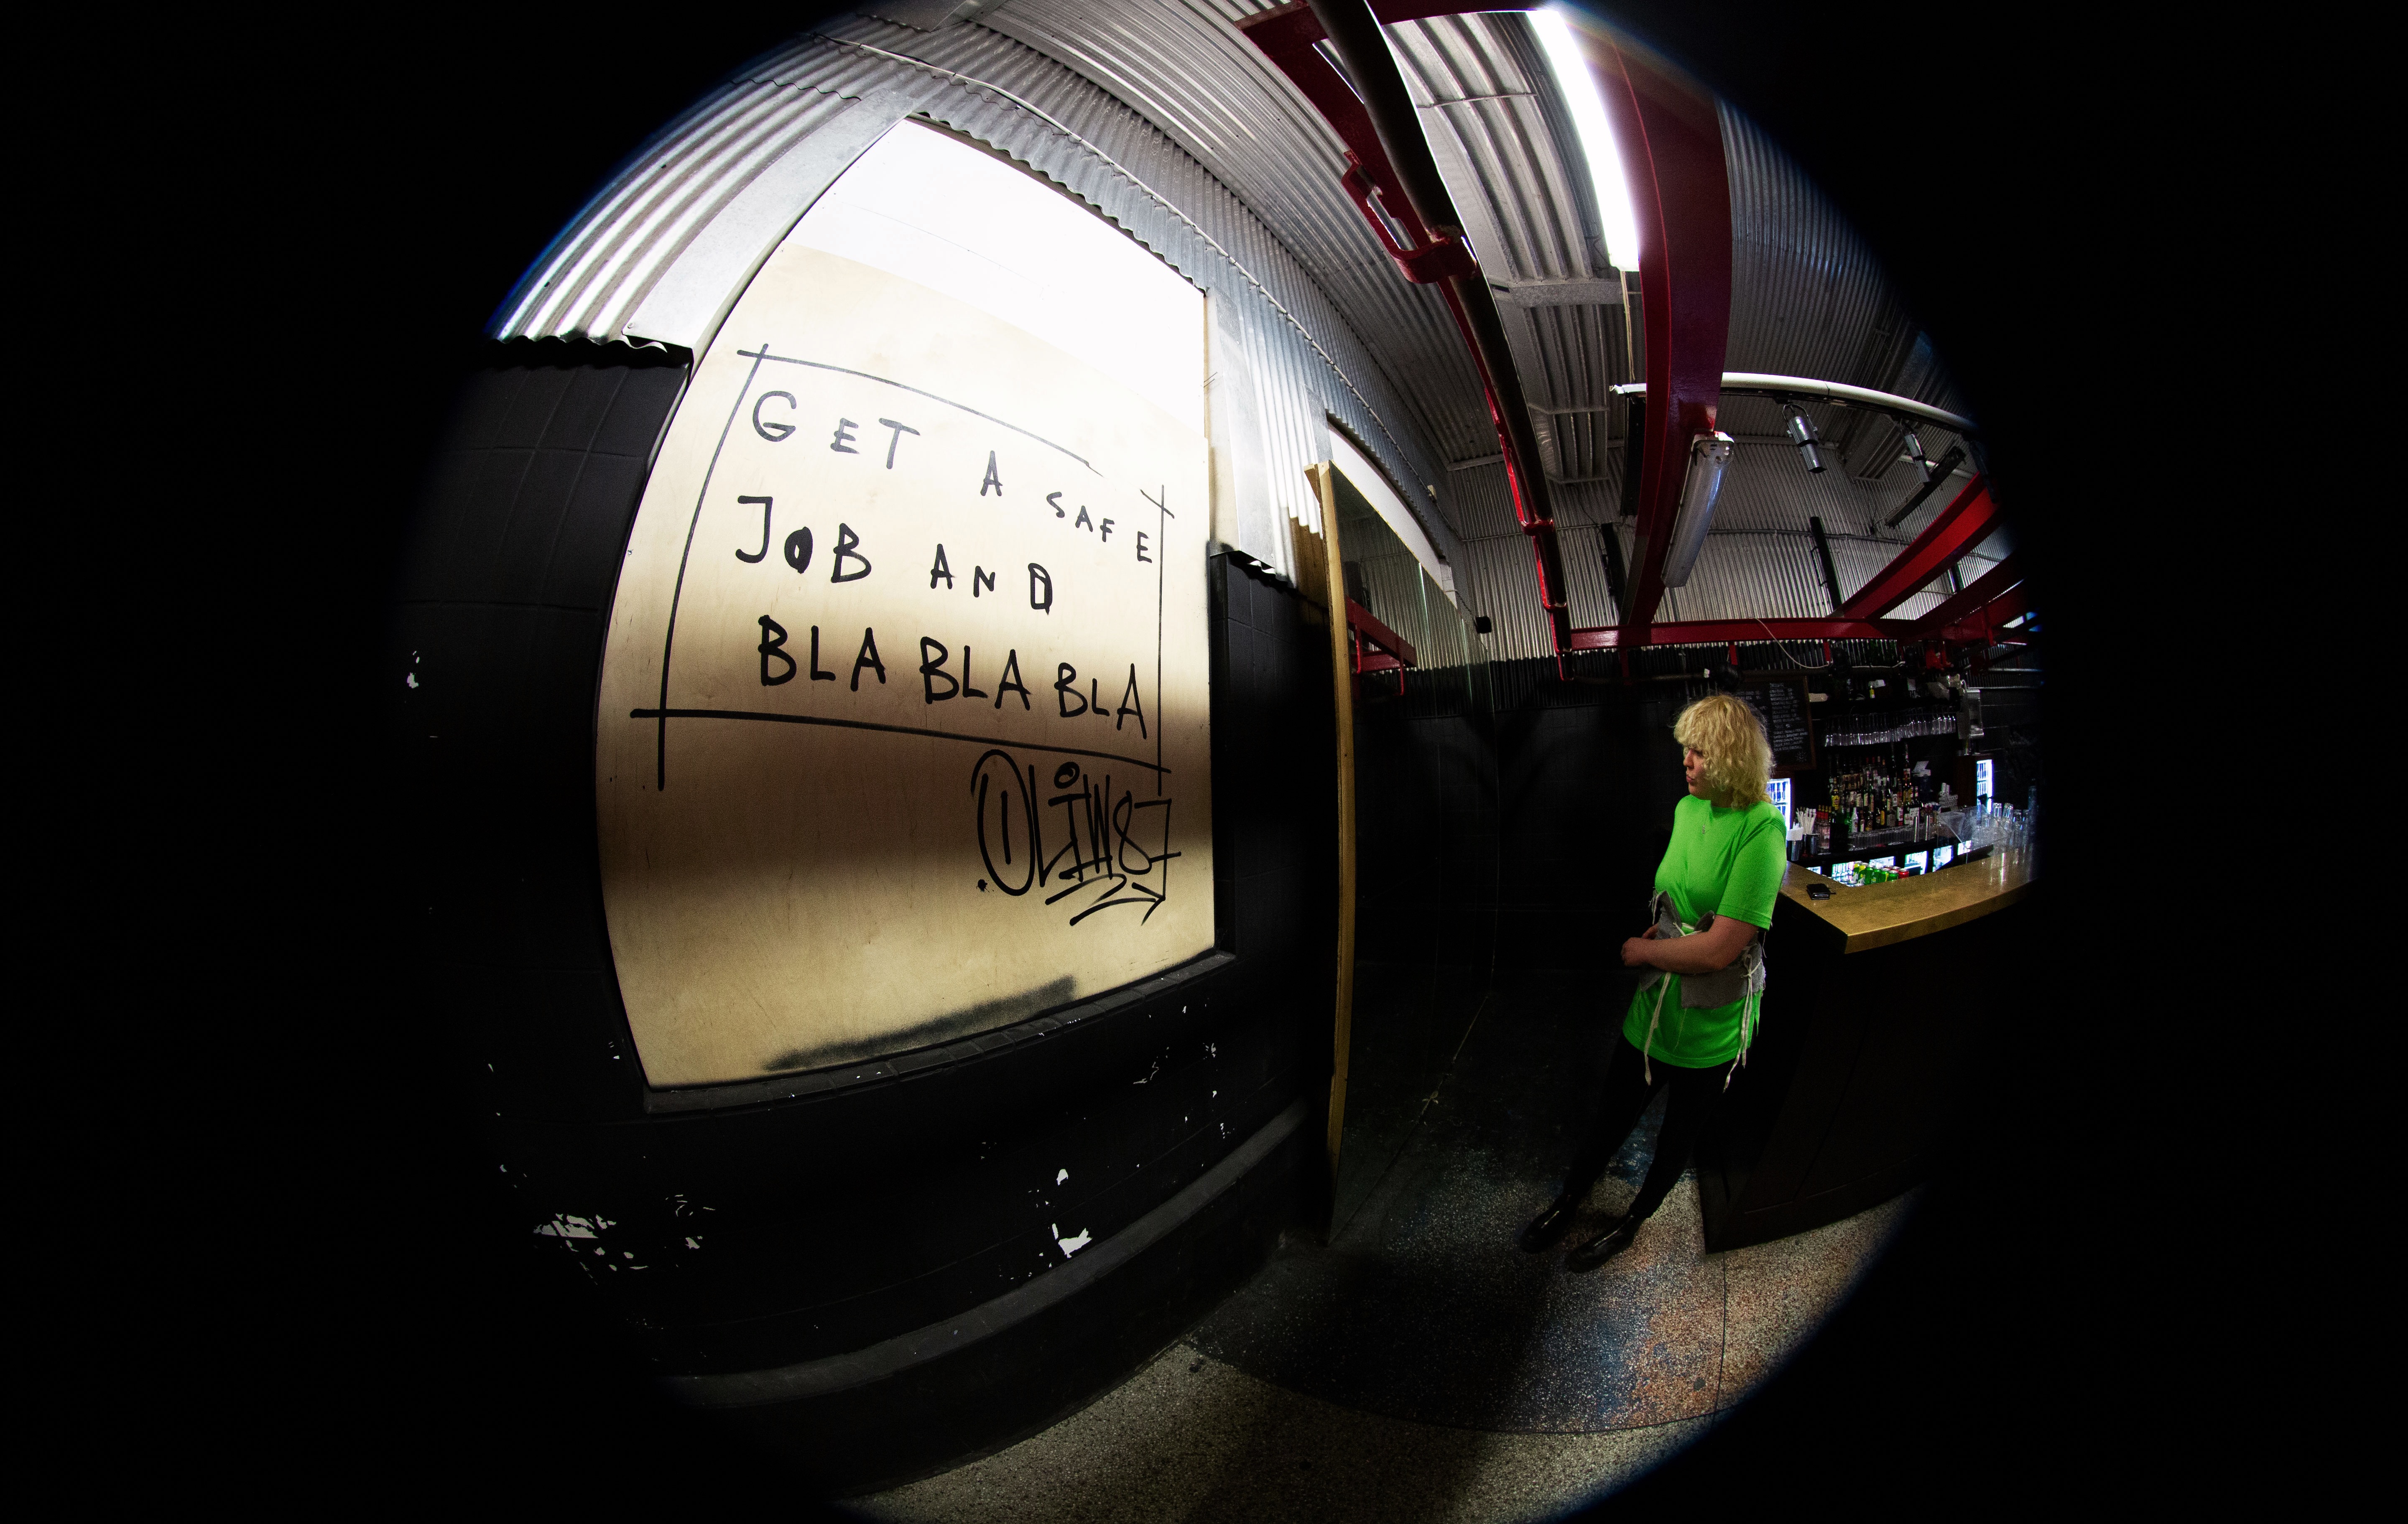 GET A SAFE
JOB AND
BLA BLA BLA